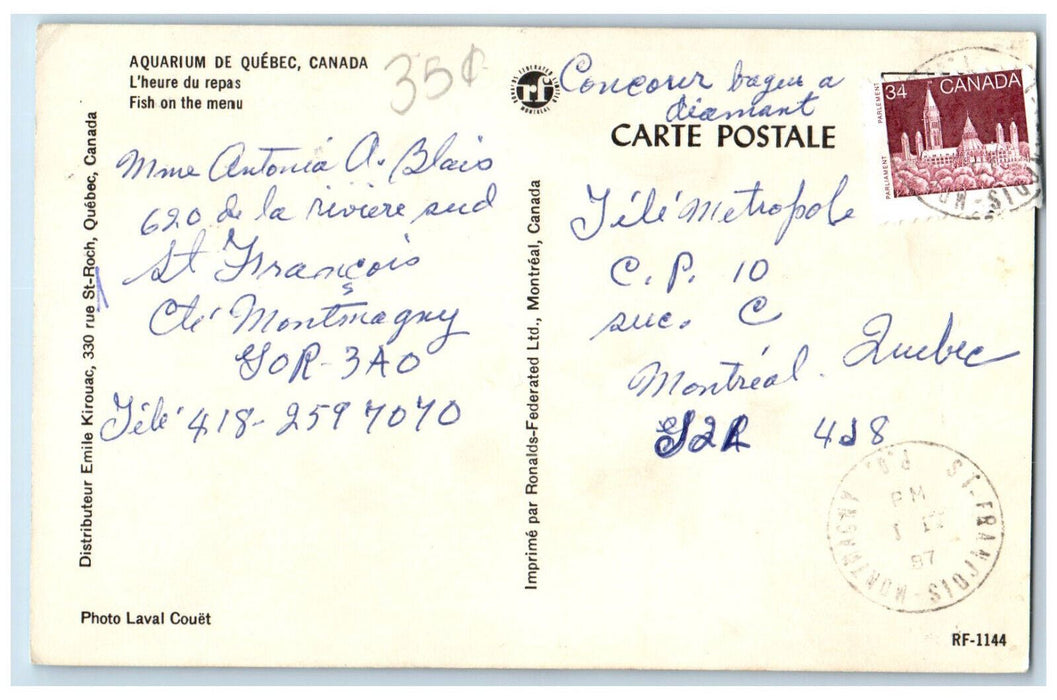 AQUARIUM DE QUÉBEC, CANADA
L'heure du repas
Fish on the menu
35¢
Mme Antonia A. Blais
620 de la rivière sud
St François
Cté Montmagny
G0R-3A0
Télé 418-259 7070
Distributeur Emile Kirouac, 330 rue St-Roch, Québec, Canada
Photo Laval Couët
Imprimé par Ronalds-Federated Ltd., Montréal, Canada
rf
RONALDS FEDERATED LIMITED
MONTREAL
Concour bague a
diamant
CARTE POSTALE
34 CANADA
PARLEMENT
PARLIAMENT
Télé Metropole
C. P. 10
suc. C
Montréal. Quebec
4J8
ST-FRANÇOIS-MONTMAGNY P.Q.
PM
87
RF-1144